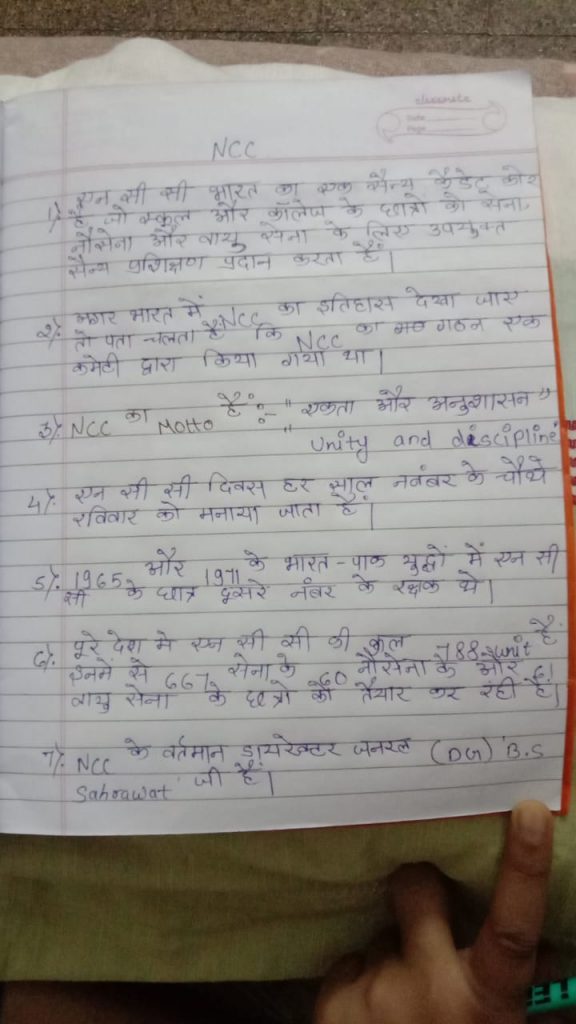 classmate
Date
Page
NCC
1) एन सी सी भारत का एक सैन्य कैडेट कोर
है जो स्कूल और कॉलेज के छात्रो को सेना,
नौसेना और वायु सेना के लिए उपयुक्त
सैन्य प्रशिक्षण प्रदान करता है।
2) अगर भारत में NCC का इतिहास देखा जाए
तो पता चलता है कि NCC का गठन एक
कमेटी द्वारा किया गया था।
3) NCC का Motto है :- "एकता और अनुशासन"
"Unity and discipline
4) एन सी सी दिवस हर साल नवंबर के चौथे
रविवार को मनाया जाता है।
5) 1965 और 1971 के भारत-पाक युद्धों में एन सी
सी के छात्र दूसरे नंबर के रक्षक थे।
6) पूरे देश मे एन सी सी की कुल 788 unit है
इनमें से 667 सेना के 60 नौसेना के और 61
वायु सेना के छात्रो को तैयार कर रही है।
7) NCC के वर्तमान डायरेक्टर जनरल (DG) 'B.S
Sahrawat' जी है।